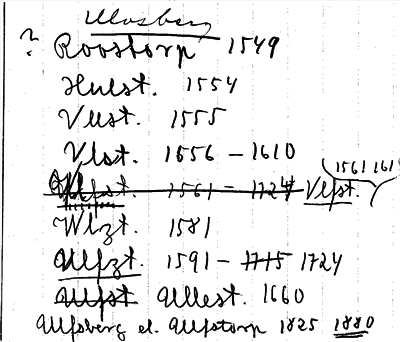 Ulvsberg
? Roostorp 1549
Hulst. 1554
Vlst. 1555
Vlst. 1556 – 1610
Ulfst. 1561 – 1724 Vlfst. (1561 161
Wlzt. 1581
Ulfzt. 1591 – 1715 1724
Ulfst Ullest. 1660
Ulfsberg el. Ulfstorp 1825 1880